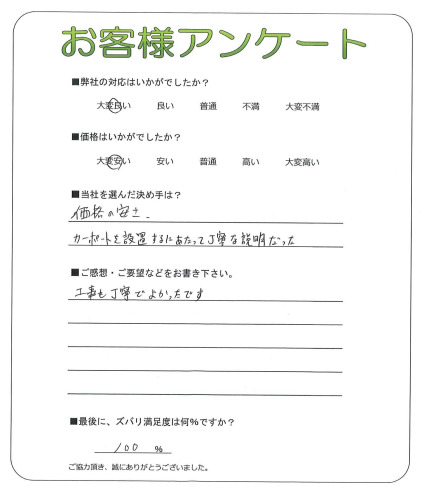 お客様アンケート
■弊社の対応はいかがでしたか？
大変良い 良い 普通 不満 大変不満
■価格はいかがでしたか？
大変安い 安い 普通 高い 大変高い
■当社を選んだ決め手は？
価格の安さ．
カーポートを設置するにあたって丁寧な説明だった
■ご感想・ご要望などをお書き下さい。
工事も丁寧でよかったです
■最後に、ズバリ満足度は何％ですか？
100 ％
ご協力頂き、誠にありがとうございました。